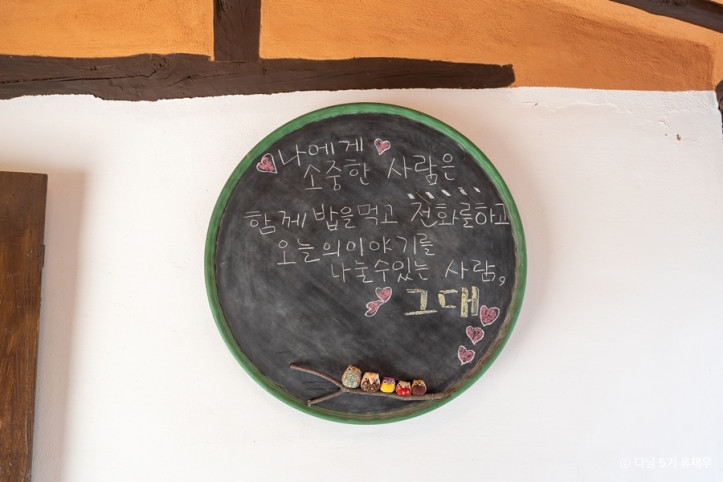 나에게
소중한 사람은
함께 밥을먹고 전화를하고
오늘의이야기를
나눌수있는 사람,
그대
ⓒ 다님 5기 류재우